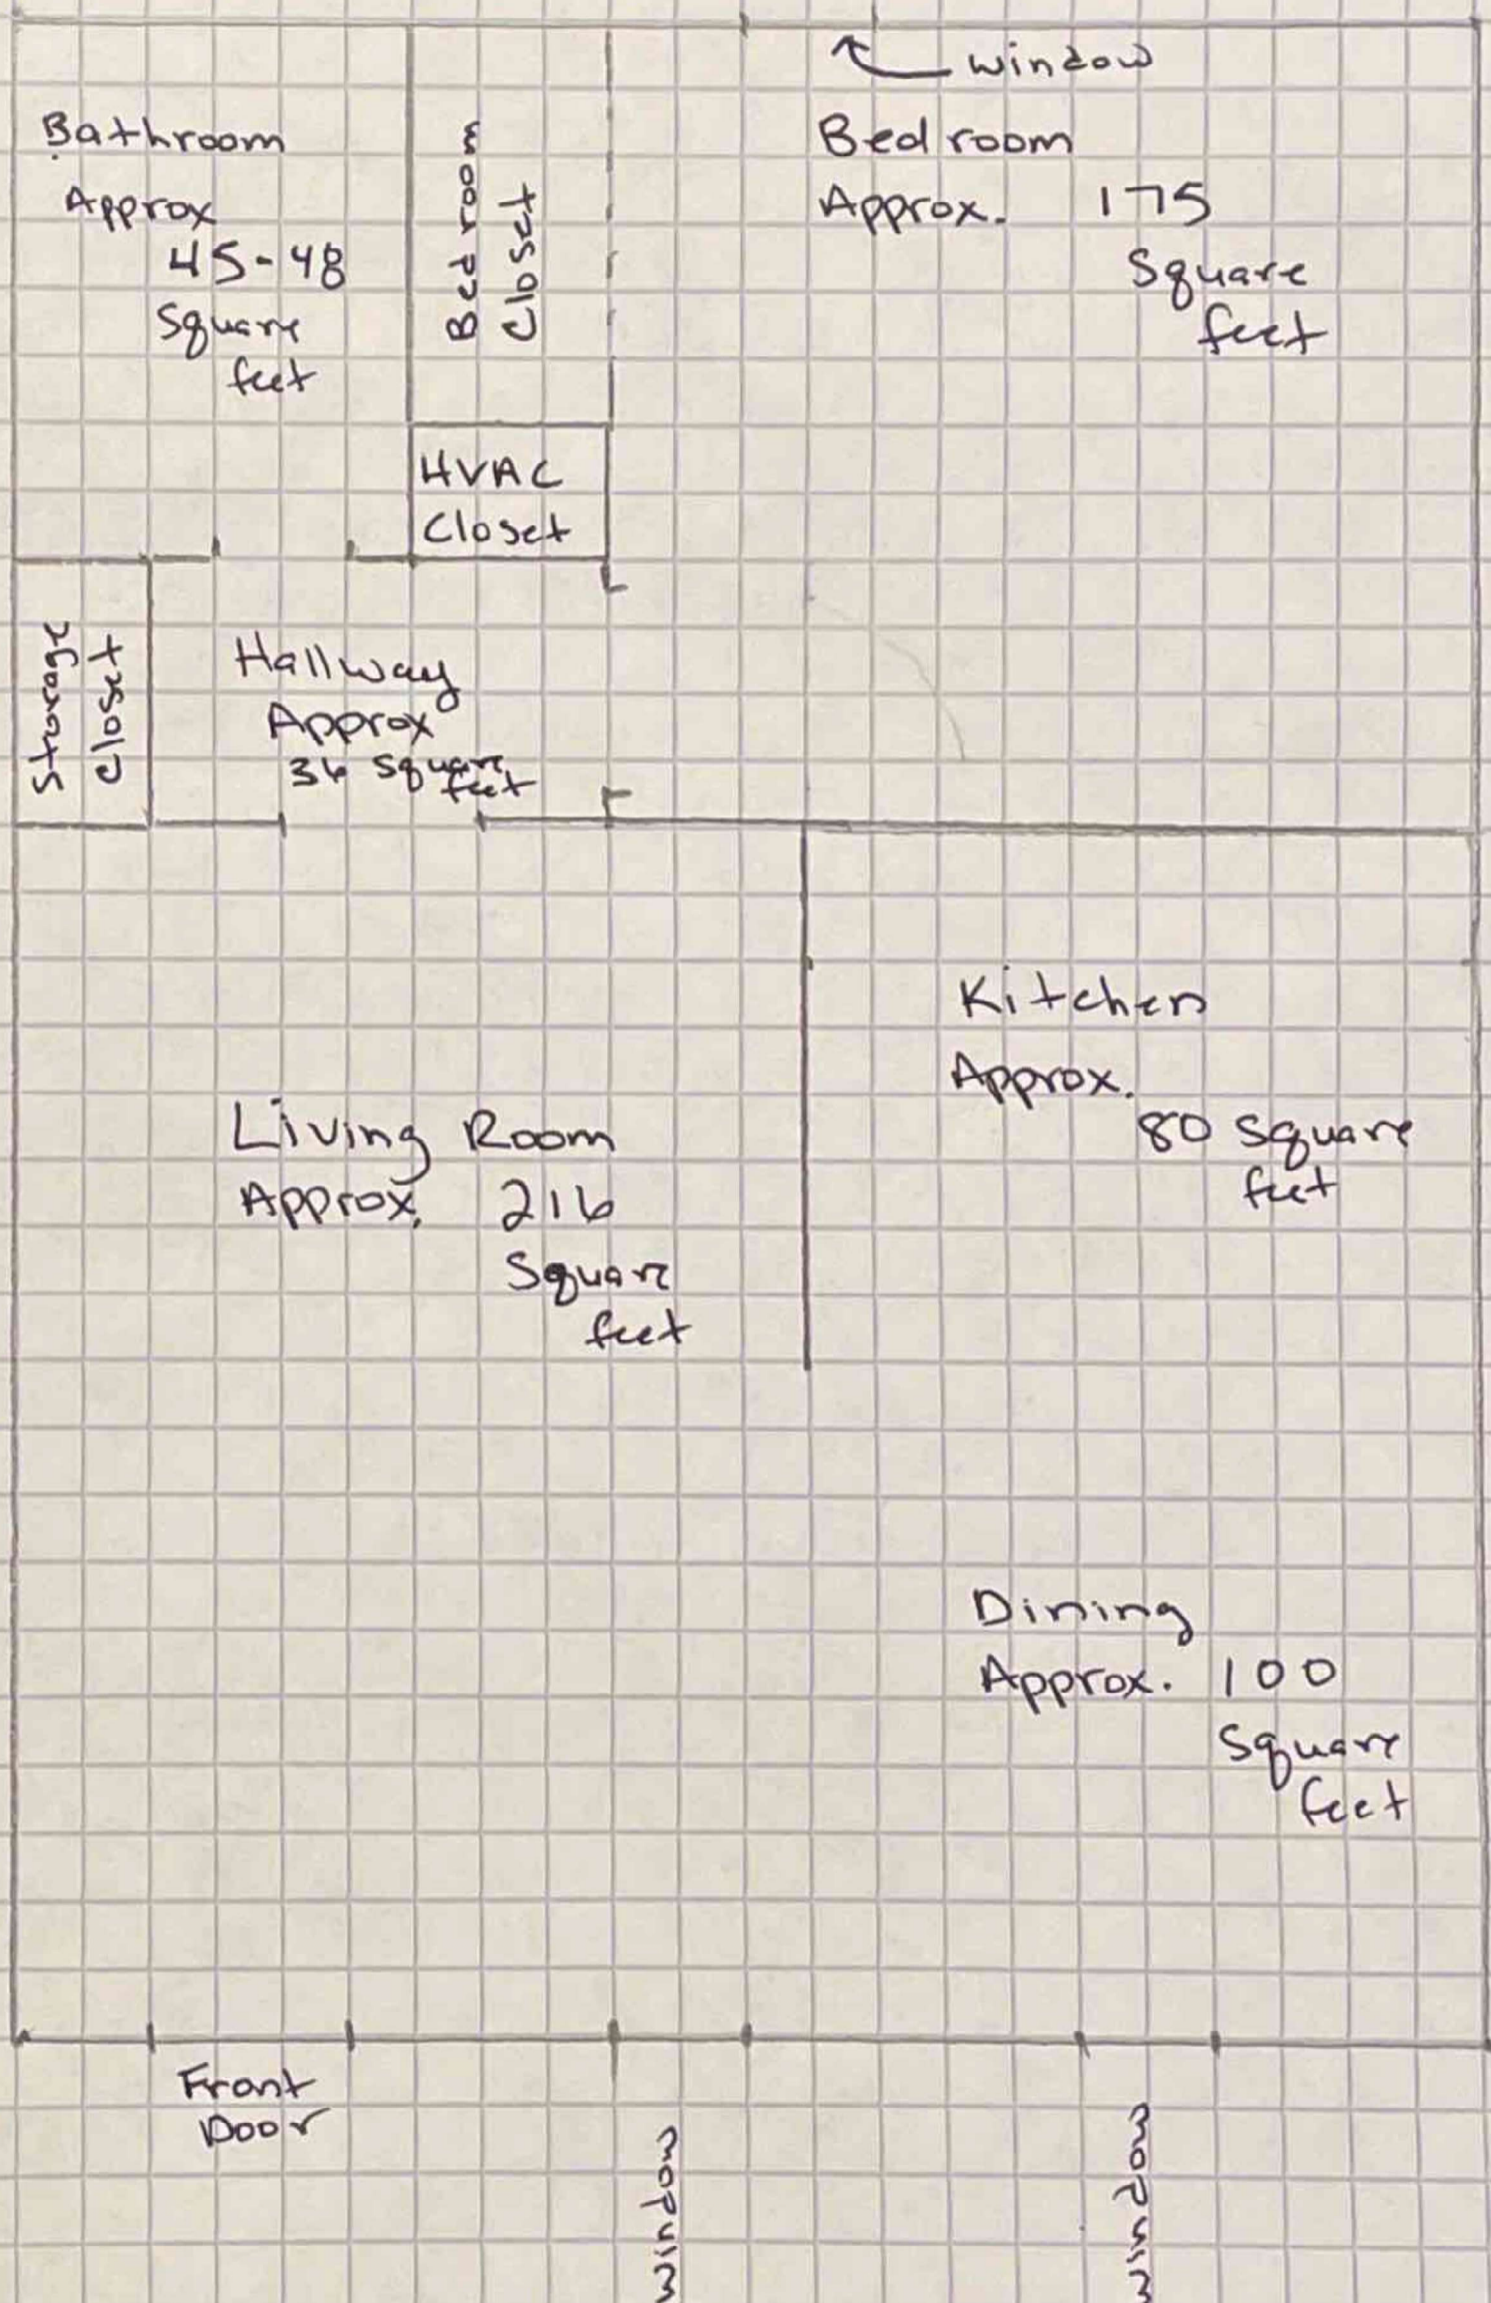 window
Bathroom
Approx
45-48
Square
feet
Bedroom
Closet
Bedroom
Approx. 175
Square
feet
HVAC
Closet
Storage
Closet
Hallway
Approx
36 square
feet
Kitchen
Approx.
80 square
feet
Living Room
Approx. 216
Square
feet
Dining
Approx. 100
Square
feet
Front
Door
window
window